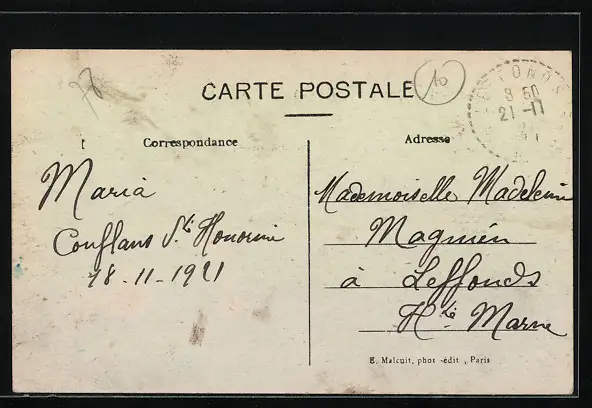 CARTE POSTALE
10
8 50
21 -11
21
Correspondance
Adresse
Maria
Conflans Ste Honorine
18-11-1921
Mademoiselle Madeleine
Magnien
à Leffonds
Hte Marne
E. Malcuit, phot-édit, Paris